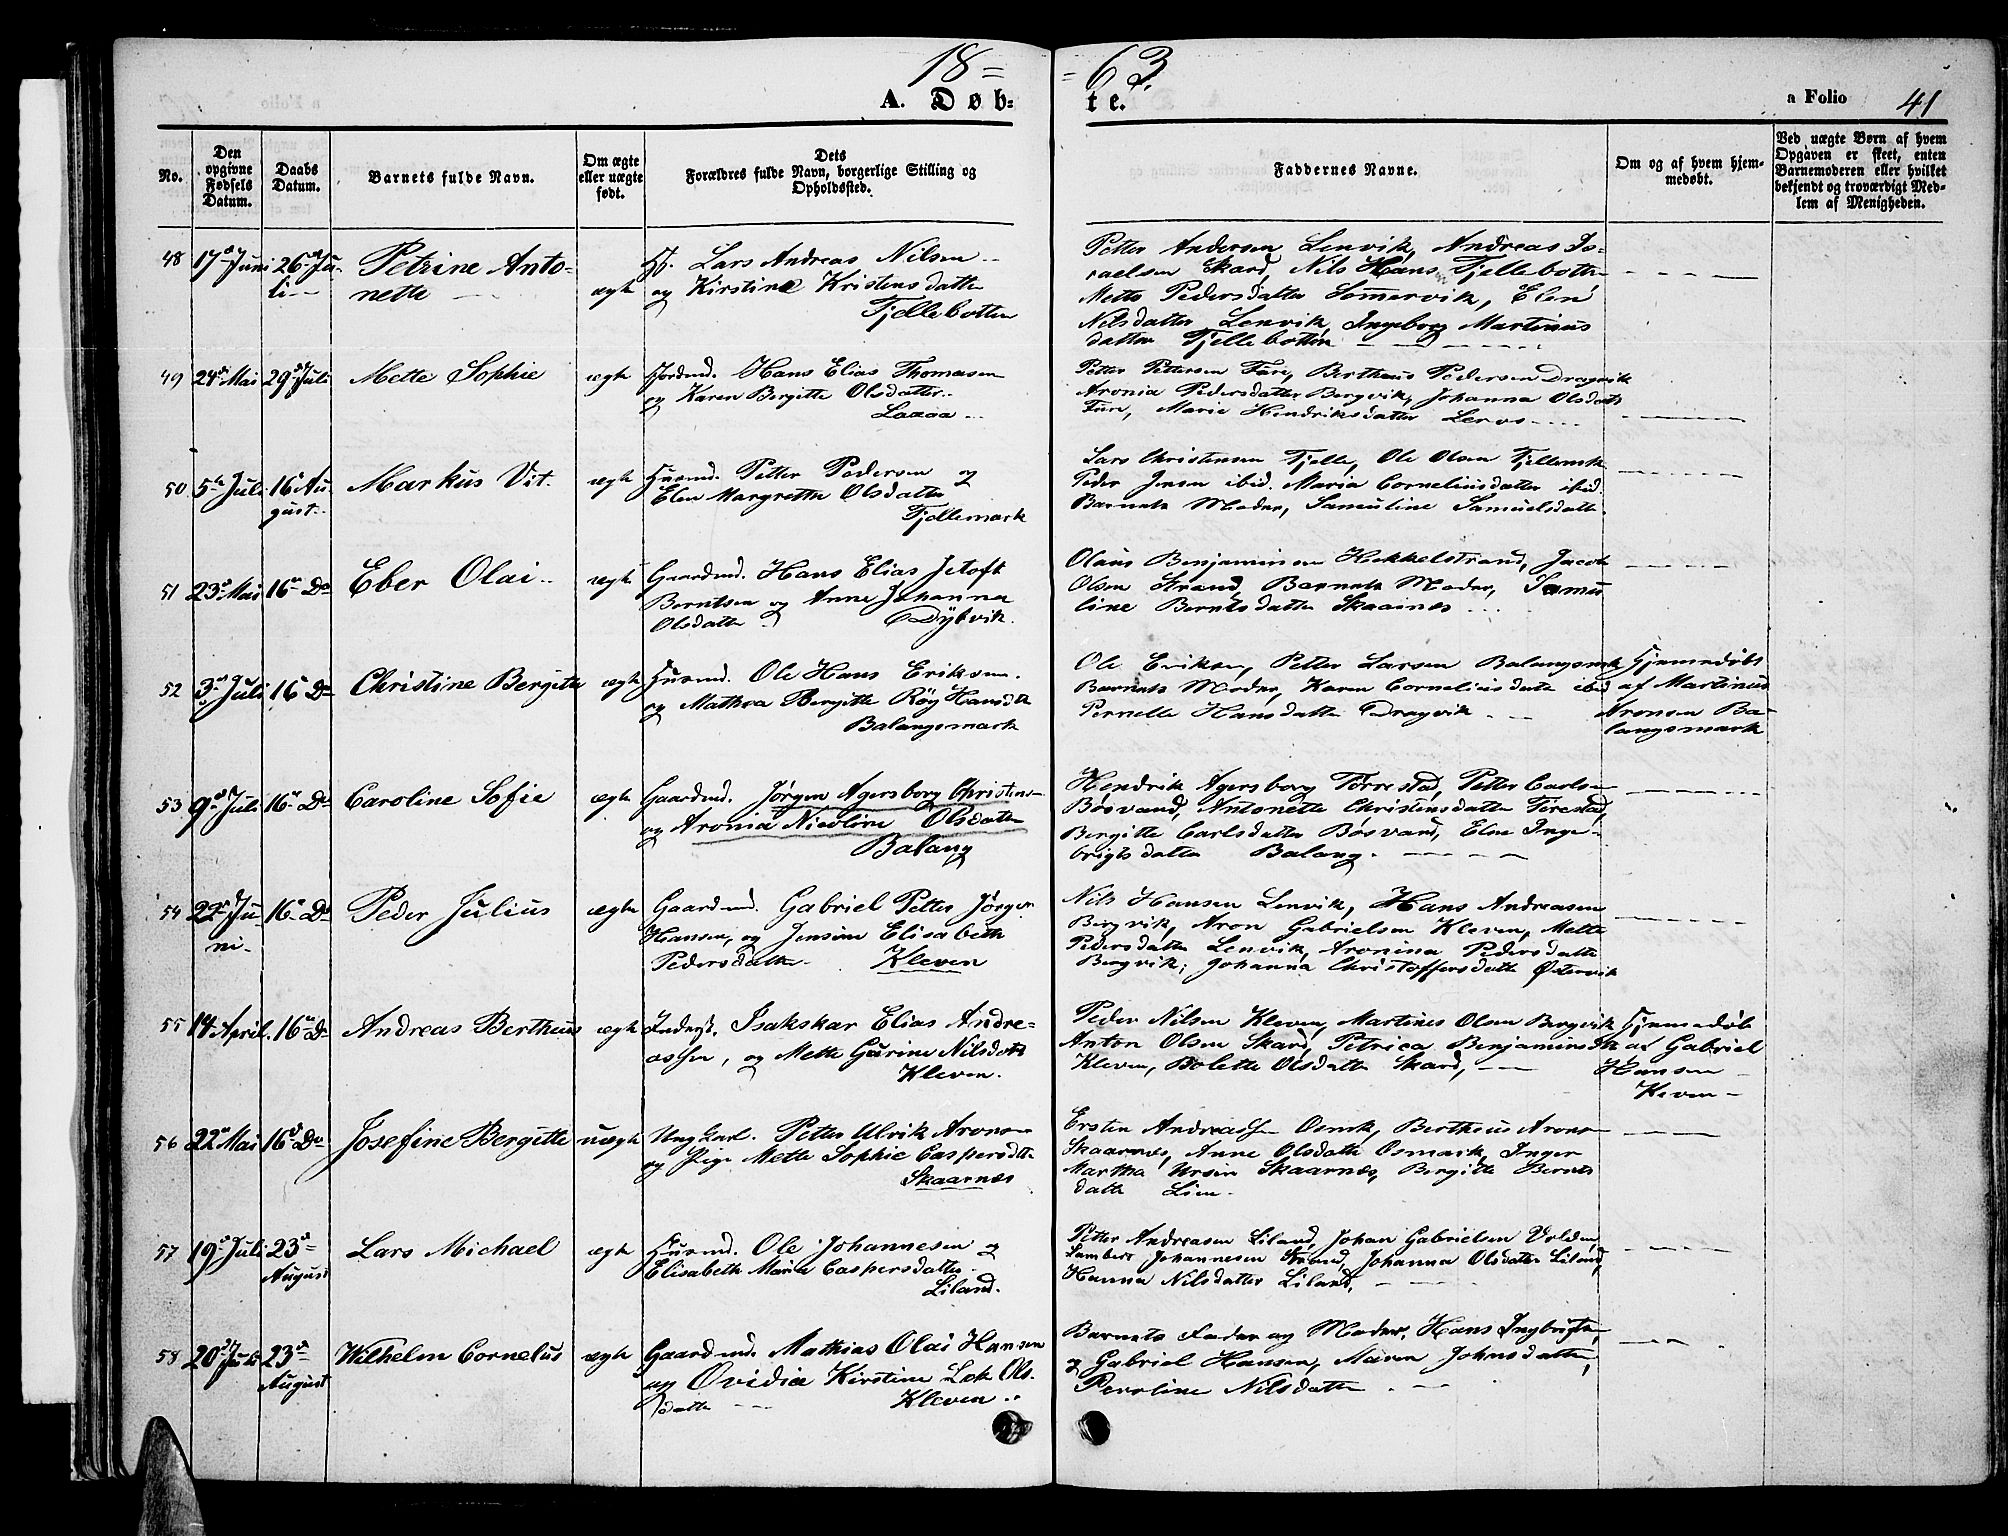 18= =63.
A. Døb= te. a Folio 41
No.
Den opgivne Fødsels Datum.
Daabs Datum.
Barnets fulde Navn.
Om ægte eller uægte født.
Dets Forældres fulde Navn, borgerlige Stilling og Opholdssted.
Faddernes Navne.
Om og af hvem hjemmedøbt.
Ved uægte Børn af hvem Opgaven er skeet, enten Barnemoderen eller hvilket bekjendt og troværdigt Medlem af Menigheden.
48 17de Juni 26de Ju-
li
Petrine Anto-
nette
ægte
Lars Andreas Nilsen
og Kirstine Kristensdatter
Fjellebotten
Petter Andersen Lenvik, Andreas Is-
raelsen Skard, Nils Hans. Fjellebotten
Mette Pedersdatter Sommervik, Elen
Nilsdatter Lenvik, Ingeborg Martinus
datter Fjellebotten
49 24de Mai 29de Juli
Mette Sophie
ægte
Hans Elias Thomasen
og Karen Bergitte Olsdatter
Laxaa
Petter Pettersen Fure, Bertheus Pedersen Dragvik
Aronia Pedersdatter Bergvik, Johanna Olsdatt
Fure, Marie Hendriksdatter
50 5te Juli 16 Au-
gust
Markus Vit.
ægte
Huusmd. Petter Pedersen og
Elen Margrethe Olsdatter
Fjellemark
Lars Christensen Fjelle, Ole Olsen Fjellemk
Peder Jensen ibid. Maria Corneliusdatter ibid.
Barnets Moder, Samuline Samuelsdatter
51 23de Mai 16de Do
Eber Olai
ægte
Gaardmd. Hans Elias Jetoft
Berntsen og Anne Johanna
Olsdatter Dybvik.
Olaus Benjaminsen Hekkelstrand, Jacob
Olsen Strand, Barnets Moder, Samu
line Berntsdatter Skaarnes
52 3de Juli 16 Do
Christine Bergitte
ægte
Huusmd. Ole Hans Eriksen.
og Mathea Bergitte Røy Hansdtr
Balangsmark
Ole Eriksen, Petter Larsen Balangsmk
Barnets Moder, Karen Corneliusdatter ibid
Pernelle Hansdatter Dragvik
Hjemmedøbt
af Martinus
Aronsen Ba-
langsmark
53 9de Juli 16de Do
Caroline Sofie
ægte
Gaardmd. Jørgen Agersborg Christens
og Aronia Nicoline Olsdatter
Balang
Hendrik Agersborg Forrestad, Petter Carlsen
Bøsvand, Antonette Christensdatter Forestad,
Bergitte Carlsdatter Bøsvand, Elen Inge-
brigtsdatter Balang.
54 22de Ju-
ni.
16de Do
Peder Julius
ægte
Gaardmd. Gabriel Petter Jørgen
Hansen, og Jensine Elisabeth
Pedersdatter Kleven
Nils Hansen Lenvik, Hans Andreasen
Bergvik, Aron Gabrielsen Kleven, Mette
Pedersdatter Lenvik, Aronina Pedersdatter
Bergvik, Johanna Christoffersdatter Østervik
55 14 April. 16de Do
Andreas Bertheus
ægte
Inderst. Isakskar Elias Andre-
assen, og Mette Gurine Nilsdatt
Kleven.
Peder Nilsen Kleven, Martines Olsen Bergvik
Anton Olsen Skard, Petrica Benjaminsdtr
Kleven, Bolette Olsdatter Skard,
Hjemmedøbt
af Gabriel
Hansen
Kleven
56 22de Mai 16de Do
Josefine Bergitte
uægte
Ung karl. Petter Ulrik Aronsen
og Pige Mette Sophie Caspersdtr
Skaarnes
Ersten Andreassen Osmk, Bertheus Arons
Skaarnes, Anne Olsdatter Osmark, Inger
Martha Ursin Skaarnes, Bergitte Bernts
datter Lien.
57 19de Juli 23de
August
Lars Michael
ægte
Huusmd. Ole Johannesen og
Elisabeth Maria Caspersdatter
Liland.
Petter Andreasen Liland, Johan Gabrielsen Volden,
Lambert Johannesen Strand, Johanna Olsdatter Liland,
Hanna Nilsdatter Liland,
58 20de Juli 23de
August
Wilhelm Cornelus
ægte
Gaardmd. Mathias Olai Hansen
og Ovidia Kirstine Lok Ols-
datter Kleven
Barnets Fader og Moder, Hans Ingbrigts,
og Gabriel Hansen, Maren Johnsdatter,
Peroline Nilsdatter